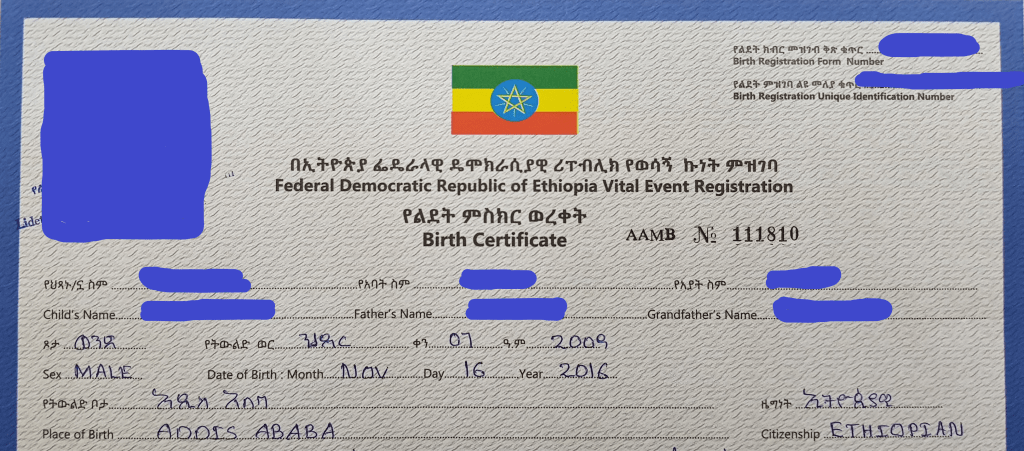 የልደት ክብር መዝገብ ቅጽ ቁጥር
Birth Registration Form Number
የልደት ምዝገባ ልዩ መለያ ቁጥር
Birth Registration Unique Identification Number
በኢትዮጵያ ፌዴራላዊ ዴሞክራሲያዊ ሪፐብሊክ የወሳኝ ኩነት ምዝገባ
Federal Democratic Republic of Ethiopia Vital Event Registration
የልደት ምስክር ወረቀት
Birth Certificate
AAMB № 111810
የህጻኑ/ኗ ስም የአባት ስም የአያት ስም
Child's Name Father's Name Grandfather's Name
ጾታ ወንድ የትውልድ ወር ህዳር ቀን 07 ዓ.ም 2009
Sex MALE Date of Birth : Month NOV Day 16 Year 2016
የትውልድ ቦታ አዲስ አበባ ዜግነት ኢትዮጵያዊ
Place of Birth ADDIS ABABA Citizenship ETHIOPIAN